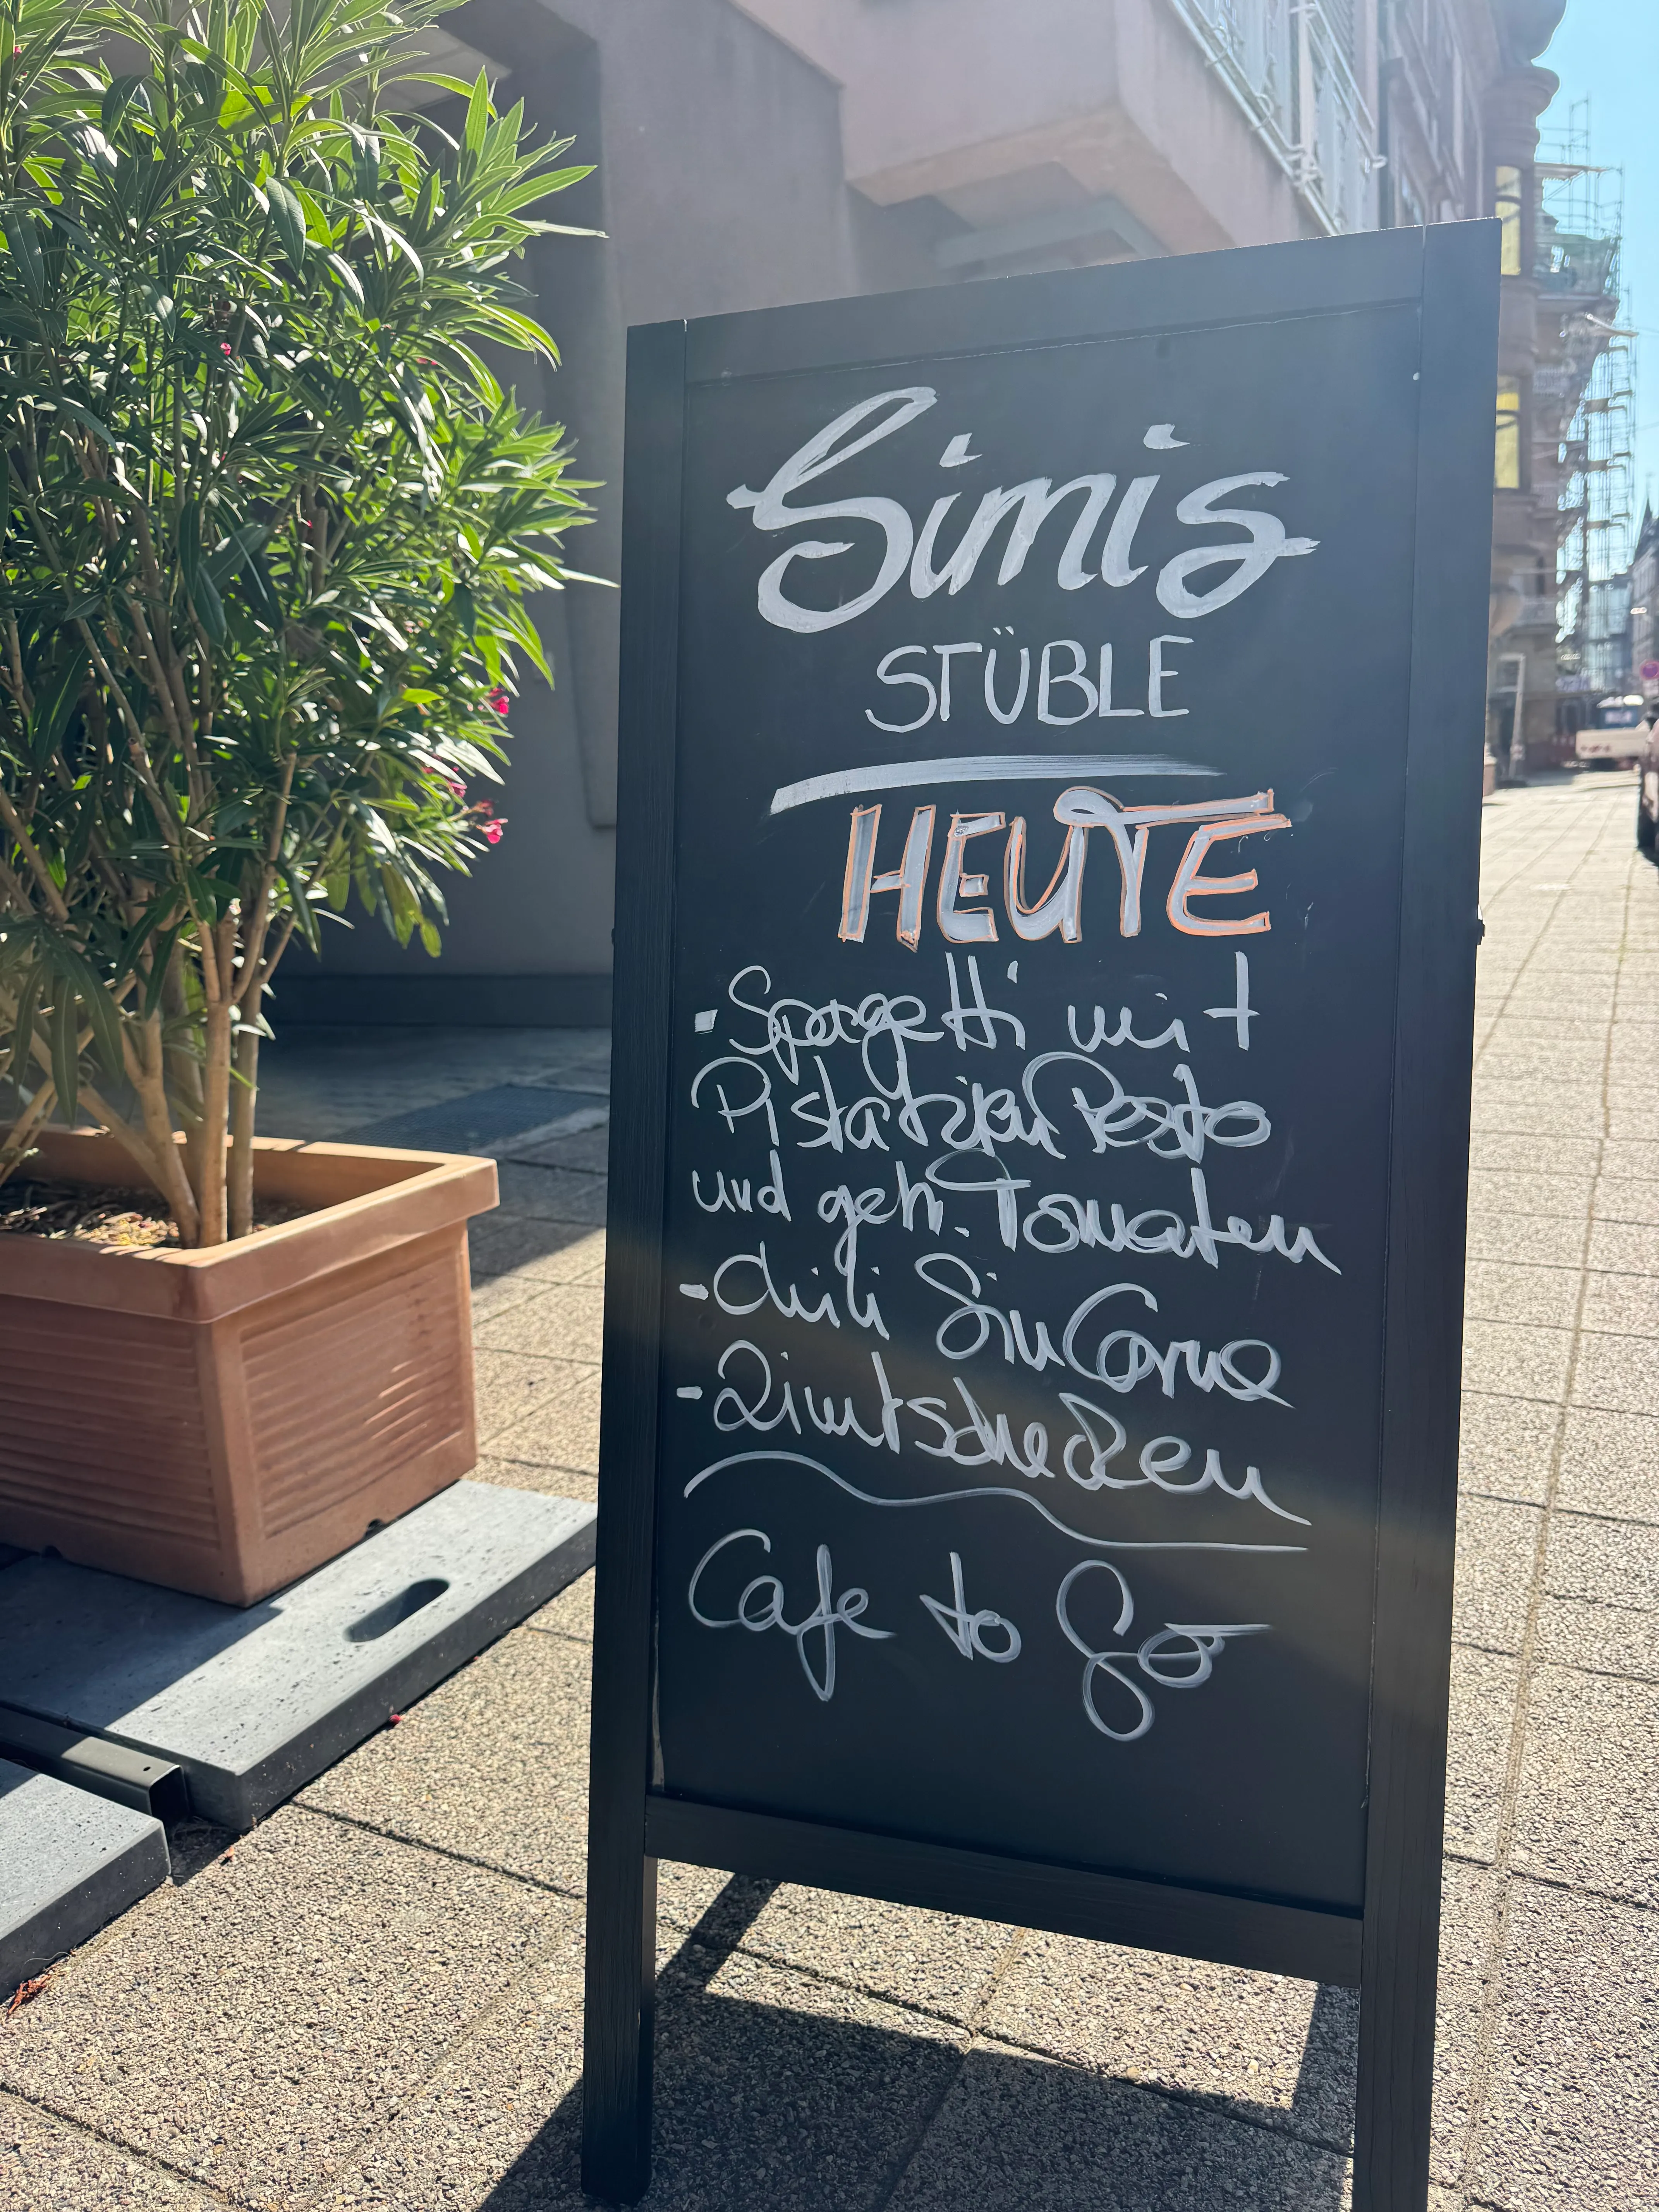 Simis
STÜBLE
HEUTE
- Spagetti mit
Pistatzien Pesto
und getr. Tomaten
- Chili Sin Carne
- Zimtschnecken
Cafe to Go